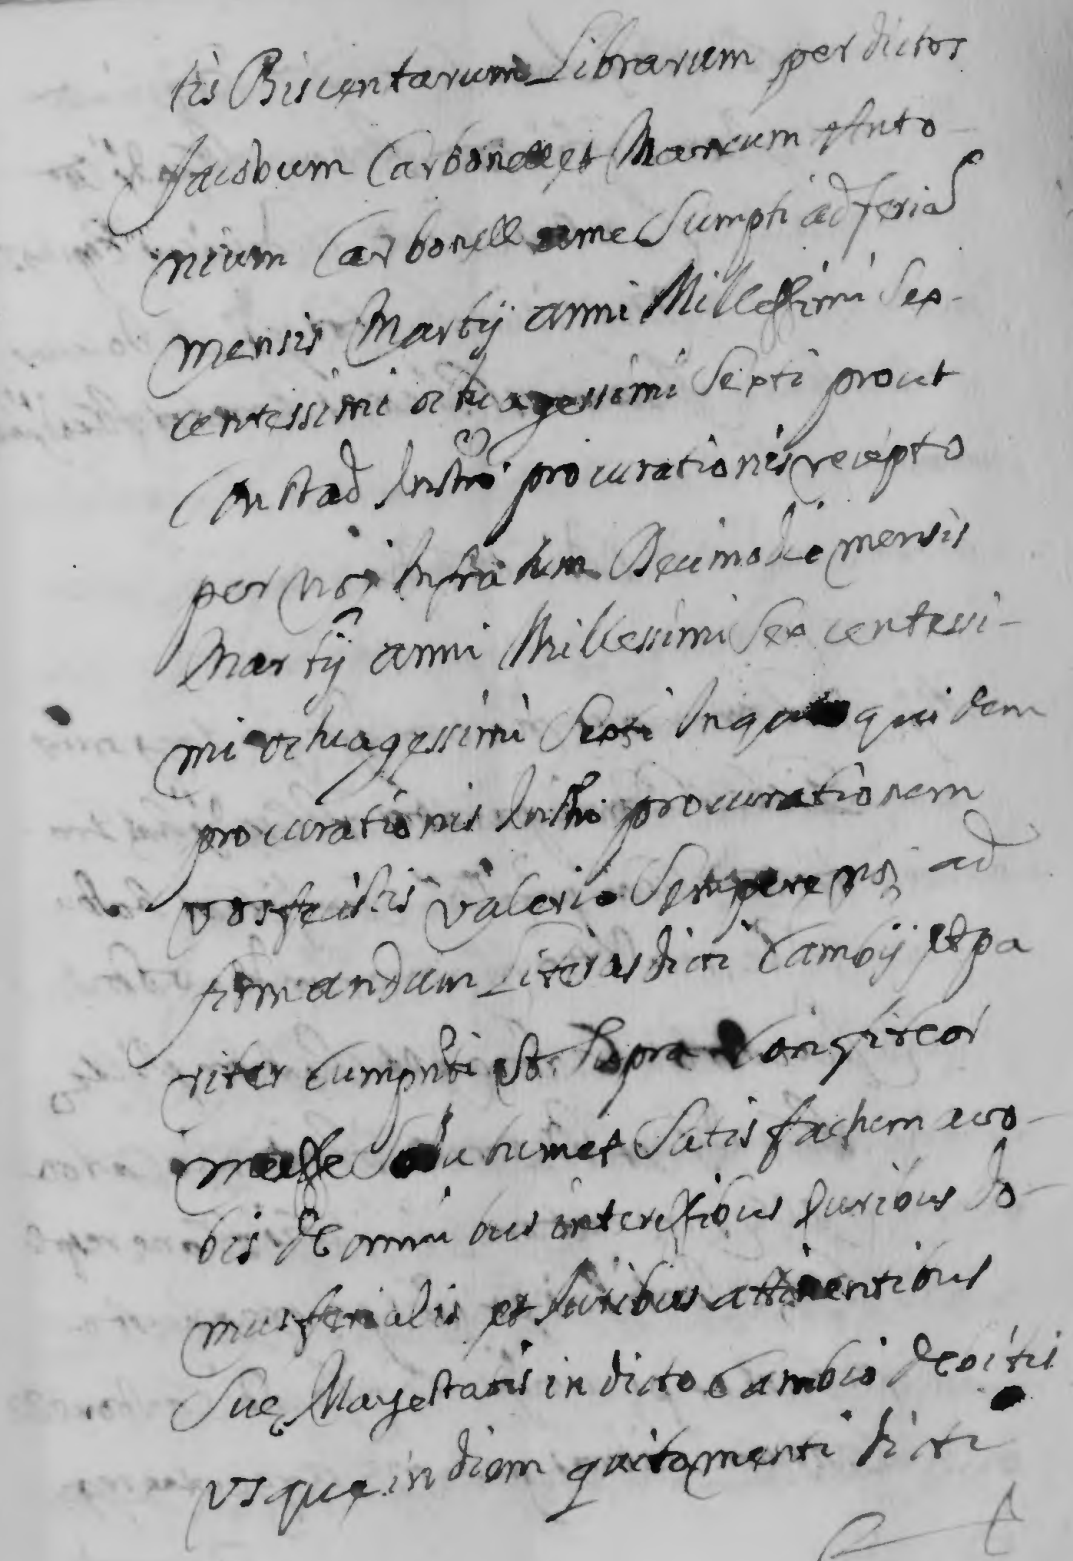 tis Biscentarum Librarum per dictos
Jacobum Carbonell et Marcum Anto-
nium Carbonell ame Sumpti ad feriaS
mensis Martij anni Millessimi Sex-
centessimi octuagessimi Sexti prout
Constad Instro procurationis recepto
per nos Infratum Decimo die mensis
Martij anni Millessimi Sex centessi-
mi octuagessimi Sexti In quo quidem
procurationis Instro procurationem
vos fecistis Valerio Sempere nos ad
firmandum Literas dicti Cambij et pa
riter Cumpnti est Supra Confiteor
me esse Solutum et Satis factum avo-
bis de omnibus interessibus Juribus do-
mus ferialis et Juribus attinentibus
Sue Mayestatis in dicto Cambio debitis
usque in diem quitamenti dicti